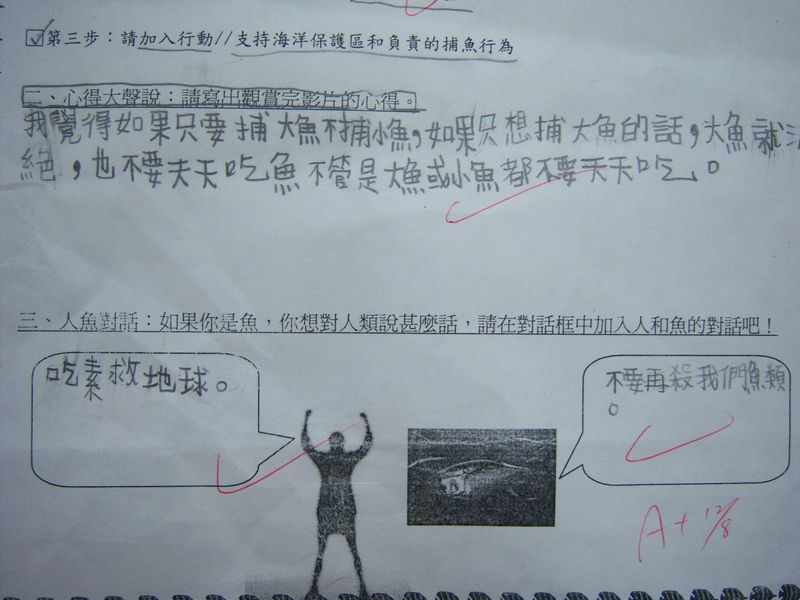 第三步：請加入行動//支持海洋保護區和負責的捕魚行為
二、心得大聲說：請寫出觀賞完影片的心得。
我覺得如果只要捕大魚不捕小魚，如果只想捕大魚的話，大魚就
絕，也不要天天吃魚不管是大魚或小魚都不要天天吃。
三、人魚對話：如果你是魚，你想對人類說甚麼話，請在對話框中加入人和魚的對話吧！
吃素救地球。
不要再殺我們魚類
。
A+ 12/8